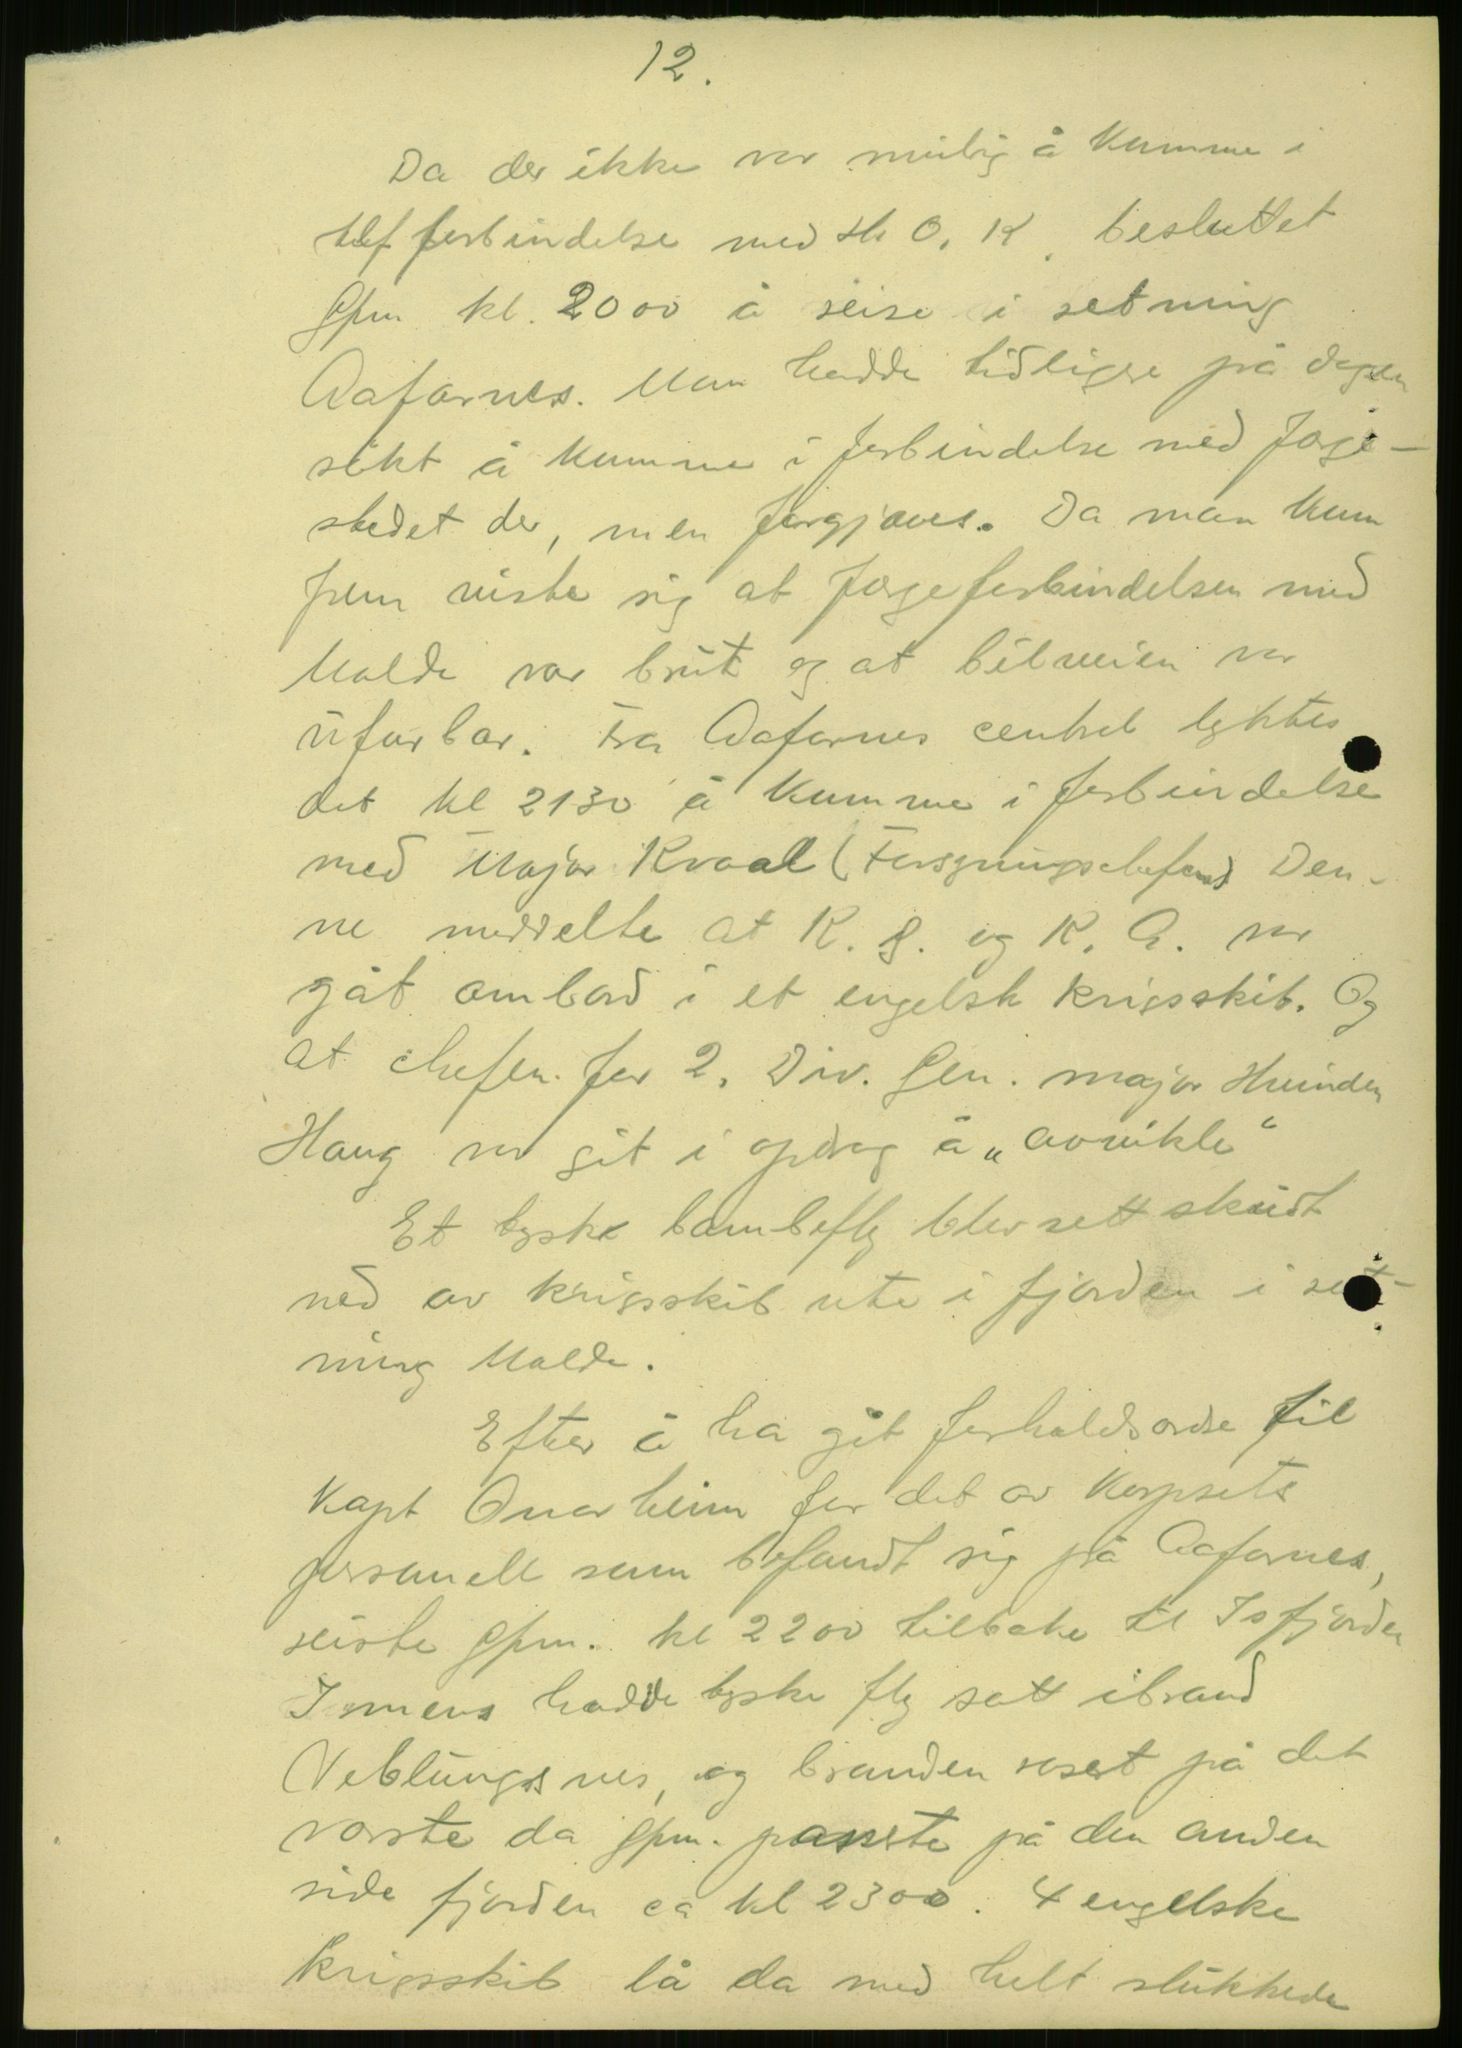 12.
Da der ikke var mulig å komme i
tlf forbindelse med H. O. K. besluttet
Gpm kl. 2000 å reise i retning
Aafarnes. Man hadde tidligere på dagen
søkt å komme i forbindelse med færge-
stedet der, men forgjæves. Da man kom
frem viste sig at færgeforbindelsen med
Molde var brut og at bilveien var
ufarbar. Fra Aafarnes central lyktes
det kl 2130 å komme i forbindelse
med Major Kvaal (Forsyningschefen) Den-
ne meddelte at K. G. og K. A. var
gåt ombord i et engelsk krigsskib. Og
at chefen for 2. Div. Gen. major Hvinden
Haug var git i opdrag å „avvikle"
Et tysk bombefly blev sett skudt
ned av krigsskib ute i fjorden i ret-
ning Molde.
Efter å ha git forholdsordre til
Kapt Onarheim for det av Korpsets
personell som befandt sig på Aafarnes,
reiste Gpm. kl 2200 tilbake til Isfjorden
Imens hadde tyske fly satt ibrand
Veblungsnes, og branden raset på det
værste da Gpm. passerte på den anden
side fjorden ca kl 2300. 4 engelske
krigsskib lå da med helt slukkede